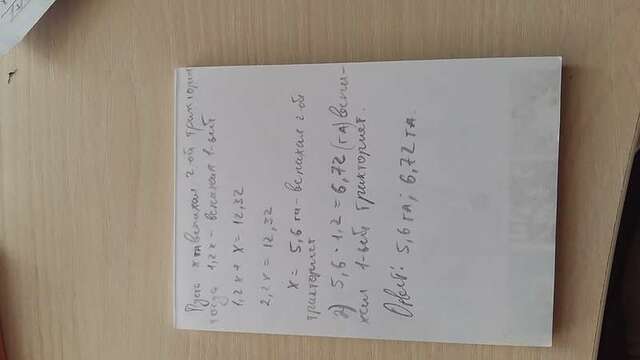 Пусть x га вспахал 2-ой тракторист
тогда 1,2x - вспахал 1-ый
1,2x + x = 12,32
2,2x = 12,32
x = 5,6 га - вспахал 2-ой
тракторист
2) 5,6 · 1,2 = 6,72 (га) вспа-
хал 1-ый тракторист.
Ответ: 5,6 га; 6,72 га.